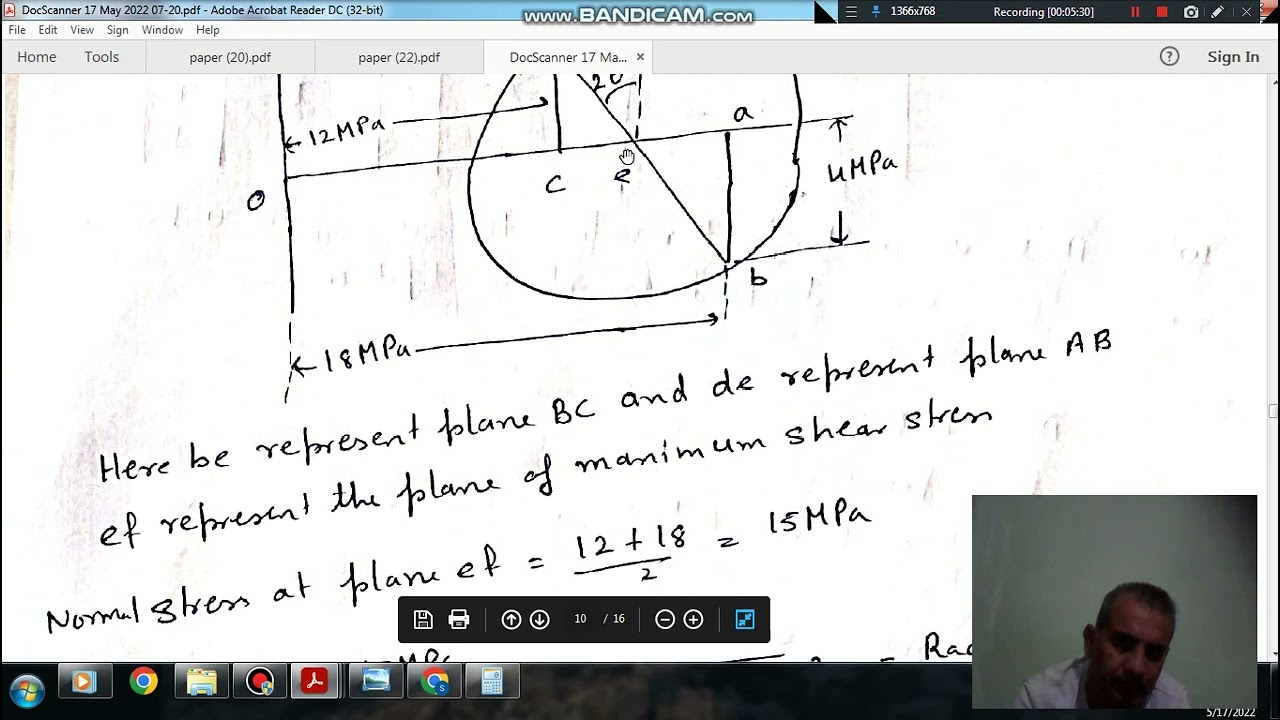 DocScanner 17 May 2022 07-20.pdf - Adobe Acrobat Reader DC (32-bit)
www.BANDICAM.com
1366x768
Recording [00:05:30]
File Edit View Sign Window Help
Home Tools paper (20).pdf paper (22).pdf DocScanner 17 Ma... × Sign In
12MPa
a
4MPa
O
C
e
b
18MPa
Here be represent plane BC and de represent plane AB
ef represent the plane of manimum shear stress
Normal stress at plane ef = 12 + 18 / 2 = 15MPa
10 / 16
5/17/2022